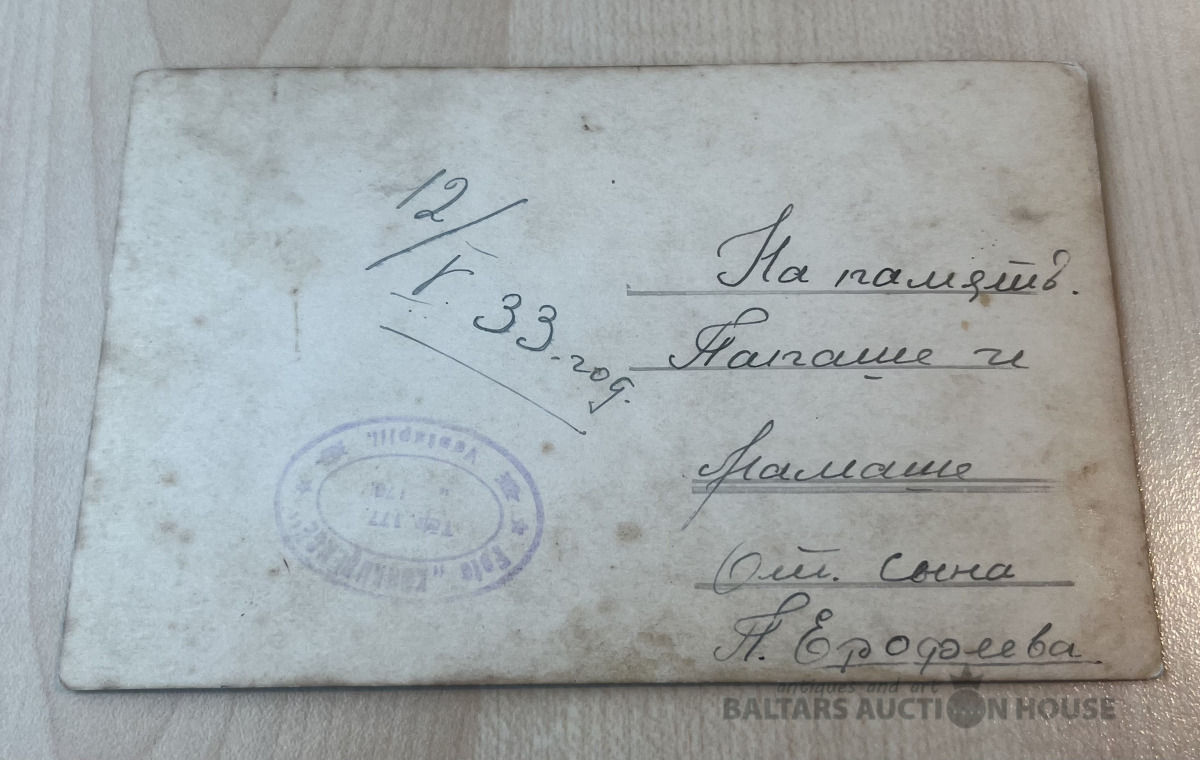 12/V. 33-год.
На память.
Папаше и
Мамаше
От. сына
П. Ерофеева.
Foto „KONKURENCE"
Ventspilī.
Tālr. 177.
„ 178.
antiques and art
BALTARS AUCTION HOUSE